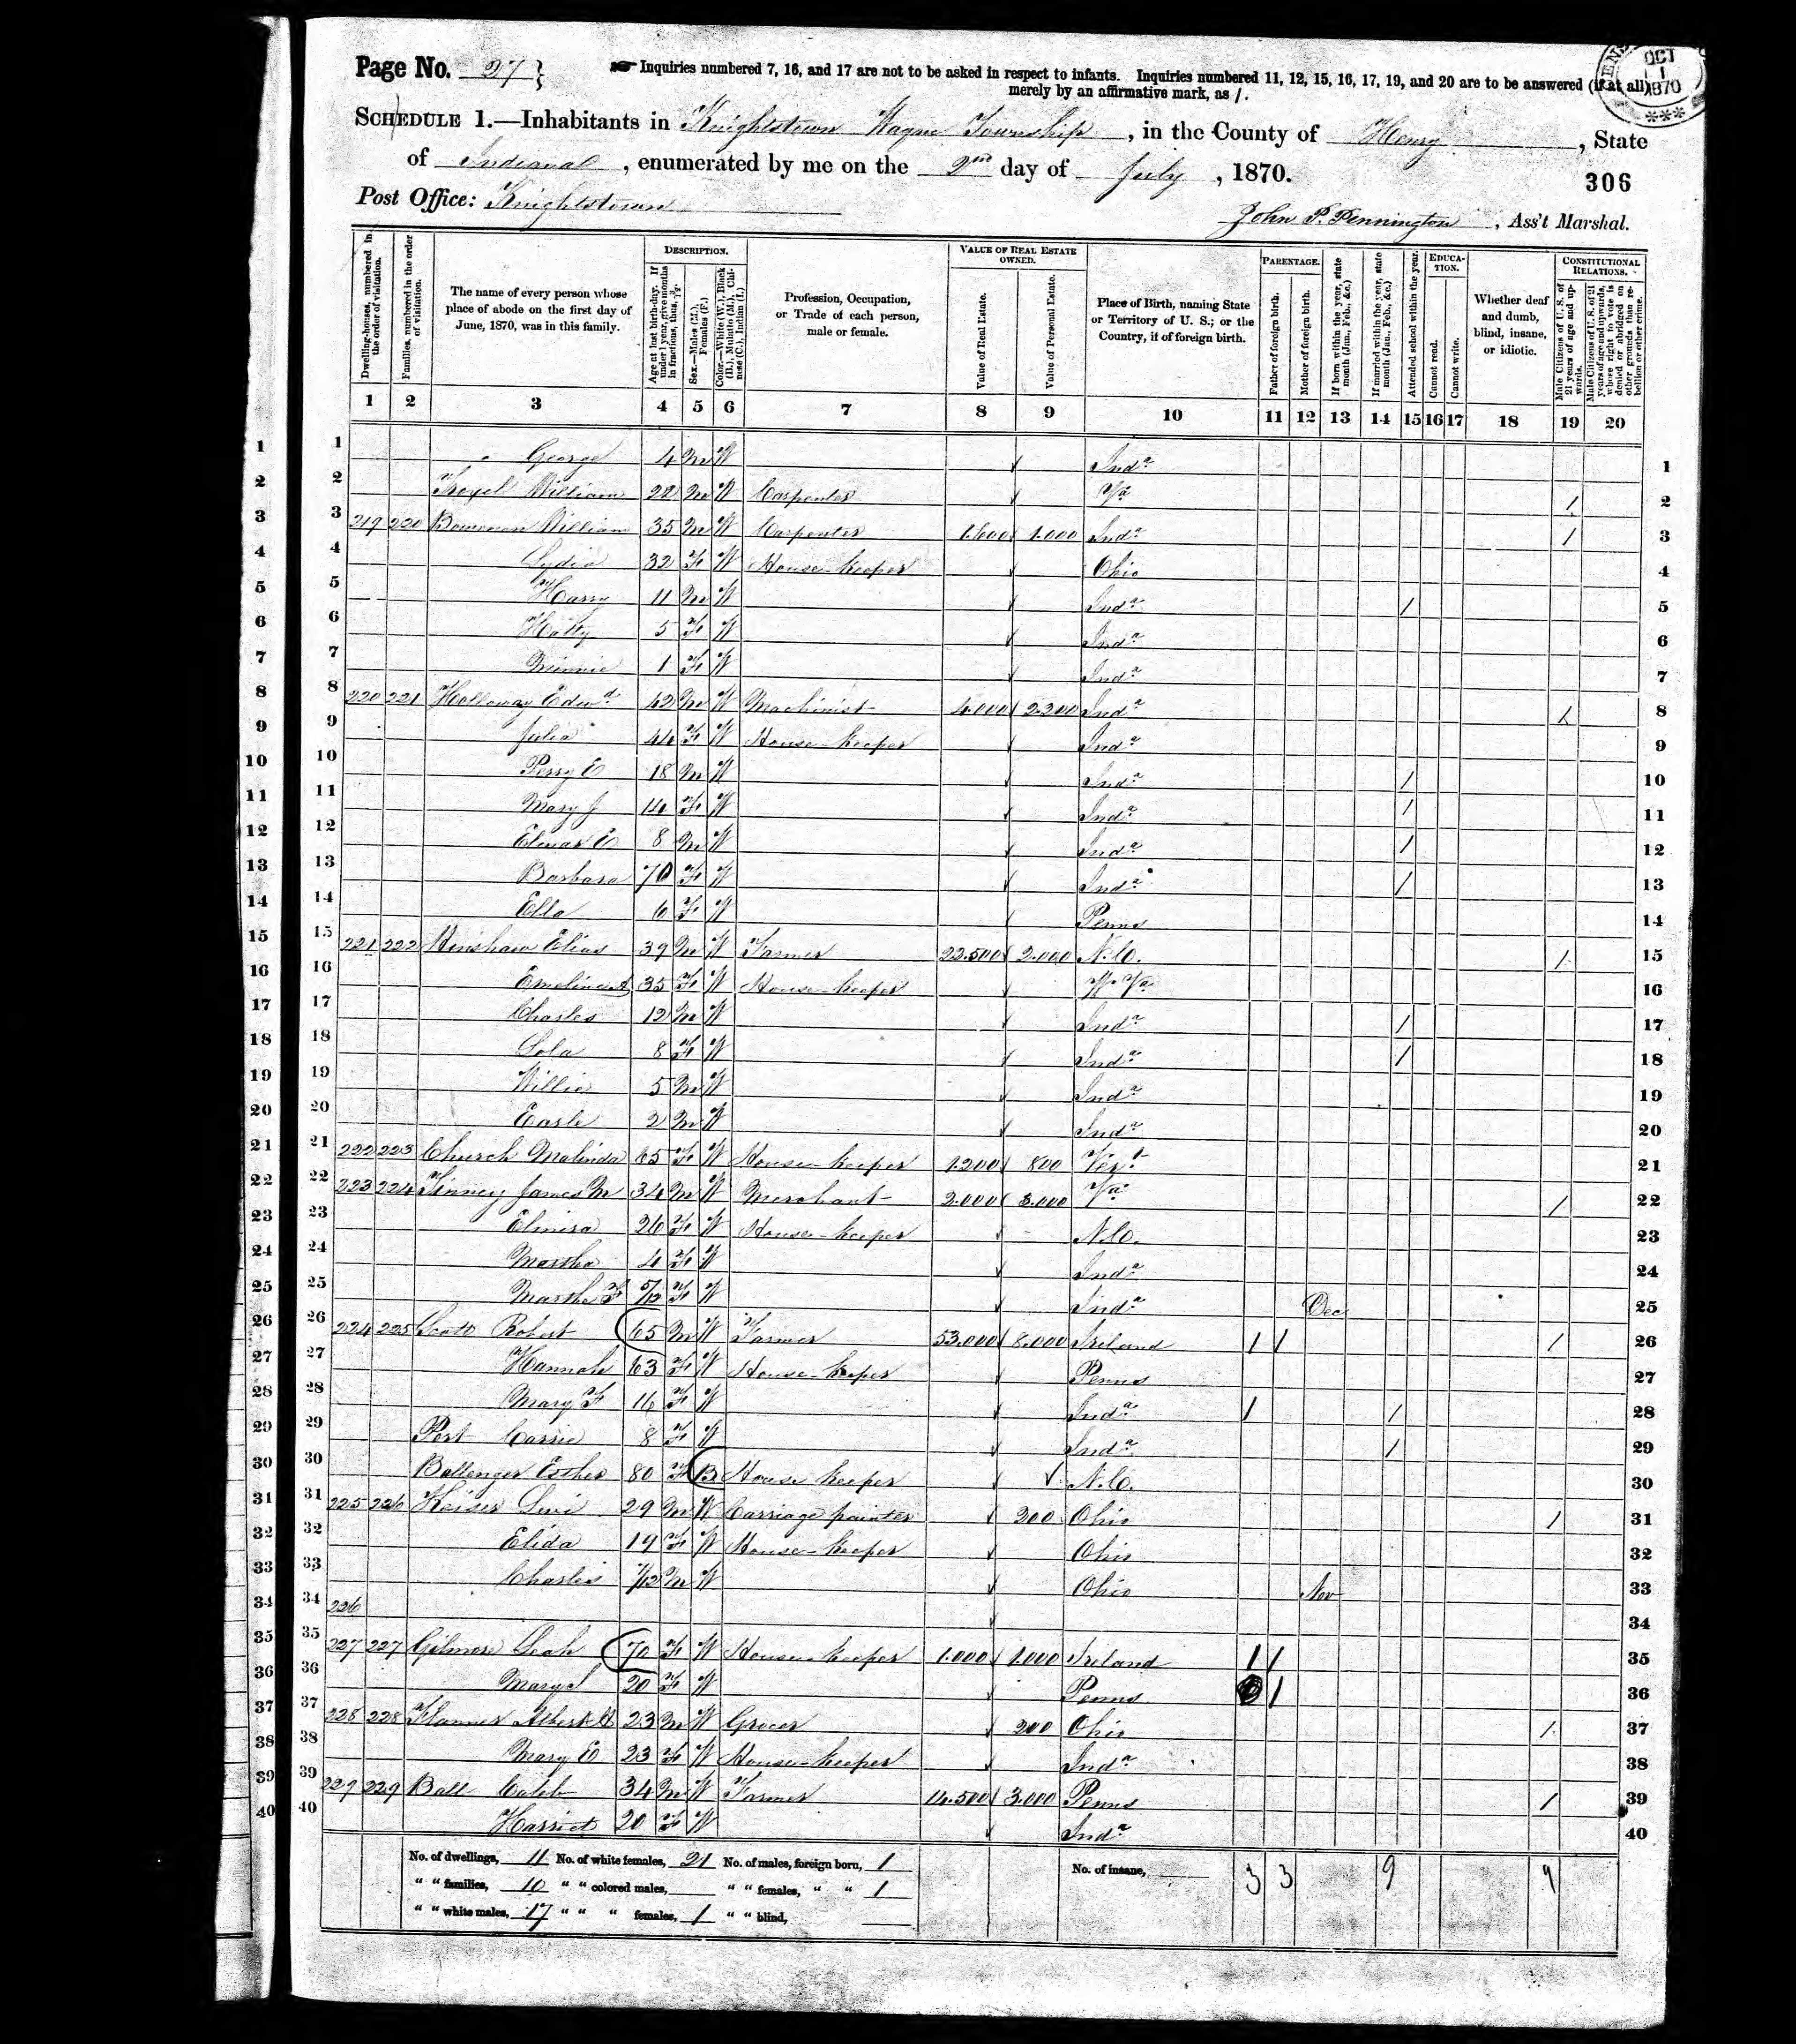 Page No. 27 }
☛ Inquiries numbered 7, 16, and 17 are not to be asked in respect to infants. Inquiries numbered 11, 12, 15, 16, 17, 19, and 20 are to be answered (if at all)
merely by an affirmative mark, as /.
OCT 1 1870
SCHEDULE 1.—Inhabitants in Knightstown Wayne Township, in the County of Henry, State
of Indiana, enumerated by me on the 2nd day of July, 1870.
306
Post Office: Knightstown
John P. Pennington, Ass't Marshal.
Dwelling-houses, numbered in the order of visitation.
Families, numbered in the order of visitation.
The name of every person whose place of abode on the first day of June, 1870, was in this family.
DESCRIPTION.
Age at last birth-day. If under 1 year, give months in fractions, thus, 3/12.
Sex.—Males (M.), Females (F.)
Color.—White (W.), Black (B.), Mulatto (M.), Chinese (C.), Indian (I.)
Profession, Occupation, or Trade of each person, male or female.
VALUE OF REAL ESTATE OWNED.
Value of Real Estate.
Value of Personal Estate.
Place of Birth, naming State or Territory of U. S.; or the Country, if of foreign birth.
PARENTAGE.
Father of foreign birth.
Mother of foreign birth.
If born within the year, state month (Jan., Feb., &c.)
If married within the year, state month (Jan., Feb., &c.)
Attended school within the year.
EDUCATION.
Cannot read.
Cannot write.
Whether deaf and dumb, blind, insane, or idiotic.
CONSTITUTIONAL RELATIONS.
Male Citizens of U. S. of 21 years of age and upwards.
Male Citizens of U. S. of 21 years of age and upwards, whose right to vote is denied or abridged on other grounds than rebellion or other crime.
1 2 3 4 5 6 7 8 9 10 11 12 13 14 15 16 17 18 19 20
1 1 George 4 M W Inda 1
2 2 William 22 M W Carpenter Va / 2
3 3 219 220 Bowman William 35 M W Carpenter 1.600 1.000 Inda / 3
4 4 Lydia 32 F W House-keeper Ohio 4
5 5 Harry 11 M W Inda / 5
6 6 Hatty 5 F W Inda 6
7 7 Minnie 1 F W Inda 7
8 8 220 221 Holloway Edwd 42 M W Machinist 4.000 2.200 Inda / 8
9 9 Julia 44 F W House-keeper Inda 9
10 10 Perry E 18 M W Inda / 10
11 11 Mary J 14 F W Inda / 11
12 12 Elmar E 8 M W Inda / 12
13 13 Barbara 70 F W Inda / 13
14 14 Ella 6 F W Penns 14
15 15 221 222 Hinshaw Elias 39 M W Farmer 22.500 2.000 N.C. / 15
16 16 Emeline A 35 F W House-keeper W Va 16
17 17 Charles 12 M W Inda / 17
18 18 Lola 8 F W Inda / 18
19 19 Willie 5 M W Inda 19
20 20 Earle 2 M W Inda 20
21 21 222 223 Church Malinda 65 F W House-keeper 1.200 800 Vert 21
22 22 223 224 Tinney James M 34 M W Merchant 2.000 3.000 Va / 22
23 23 Elmira 26 F W House-keeper N.C. 23
24 24 Martha 4 F W Inda 24
25 25 Martha F 5/12 F W Inda Dec 25
26 26 224 225 Scott Robert 65 M W Farmer 53.000 8.000 Ireland / / / 26
27 27 Hannah 63 F W House-keeper Penns 27
28 28 Mary F 16 F W Inda / / 28
29 29 Post Carrie 8 F W Inda / 29
30 30 Ballenger Esther 80 F B House keeper N.C. 30
31 31 225 226 Keiser Levi 29 M W Carriage painter 200 Ohio / 31
32 32 Elida 19 F W House-keeper Ohio 32
33 33 Charles 7/12 M W Ohio Nov 33
34 34 226 34
35 35 227 227 Gilmore Leah 70 F W House-keeper 1.000 1.000 Ireland / / 35
36 36 Mary 20 F W Penns / 36
37 37 228 228 Flanner Albert 23 M W Grocer 200 Ohio / 37
38 38 Mary E 23 F W House-keeper Inda 38
39 39 229 229 Ball Caleb 34 M W Farmer 14.500 3.000 Penns / 39
40 40 Harriet 20 F W Inda 40
No. of dwellings, 11 No. of white females, 21 No. of males, foreign born, 1 No. of insane, 3 3 9 9
" " families, 10 " " colored males, " " females, " " 1
" " white males, 17 " " " females, 1 " " blind,